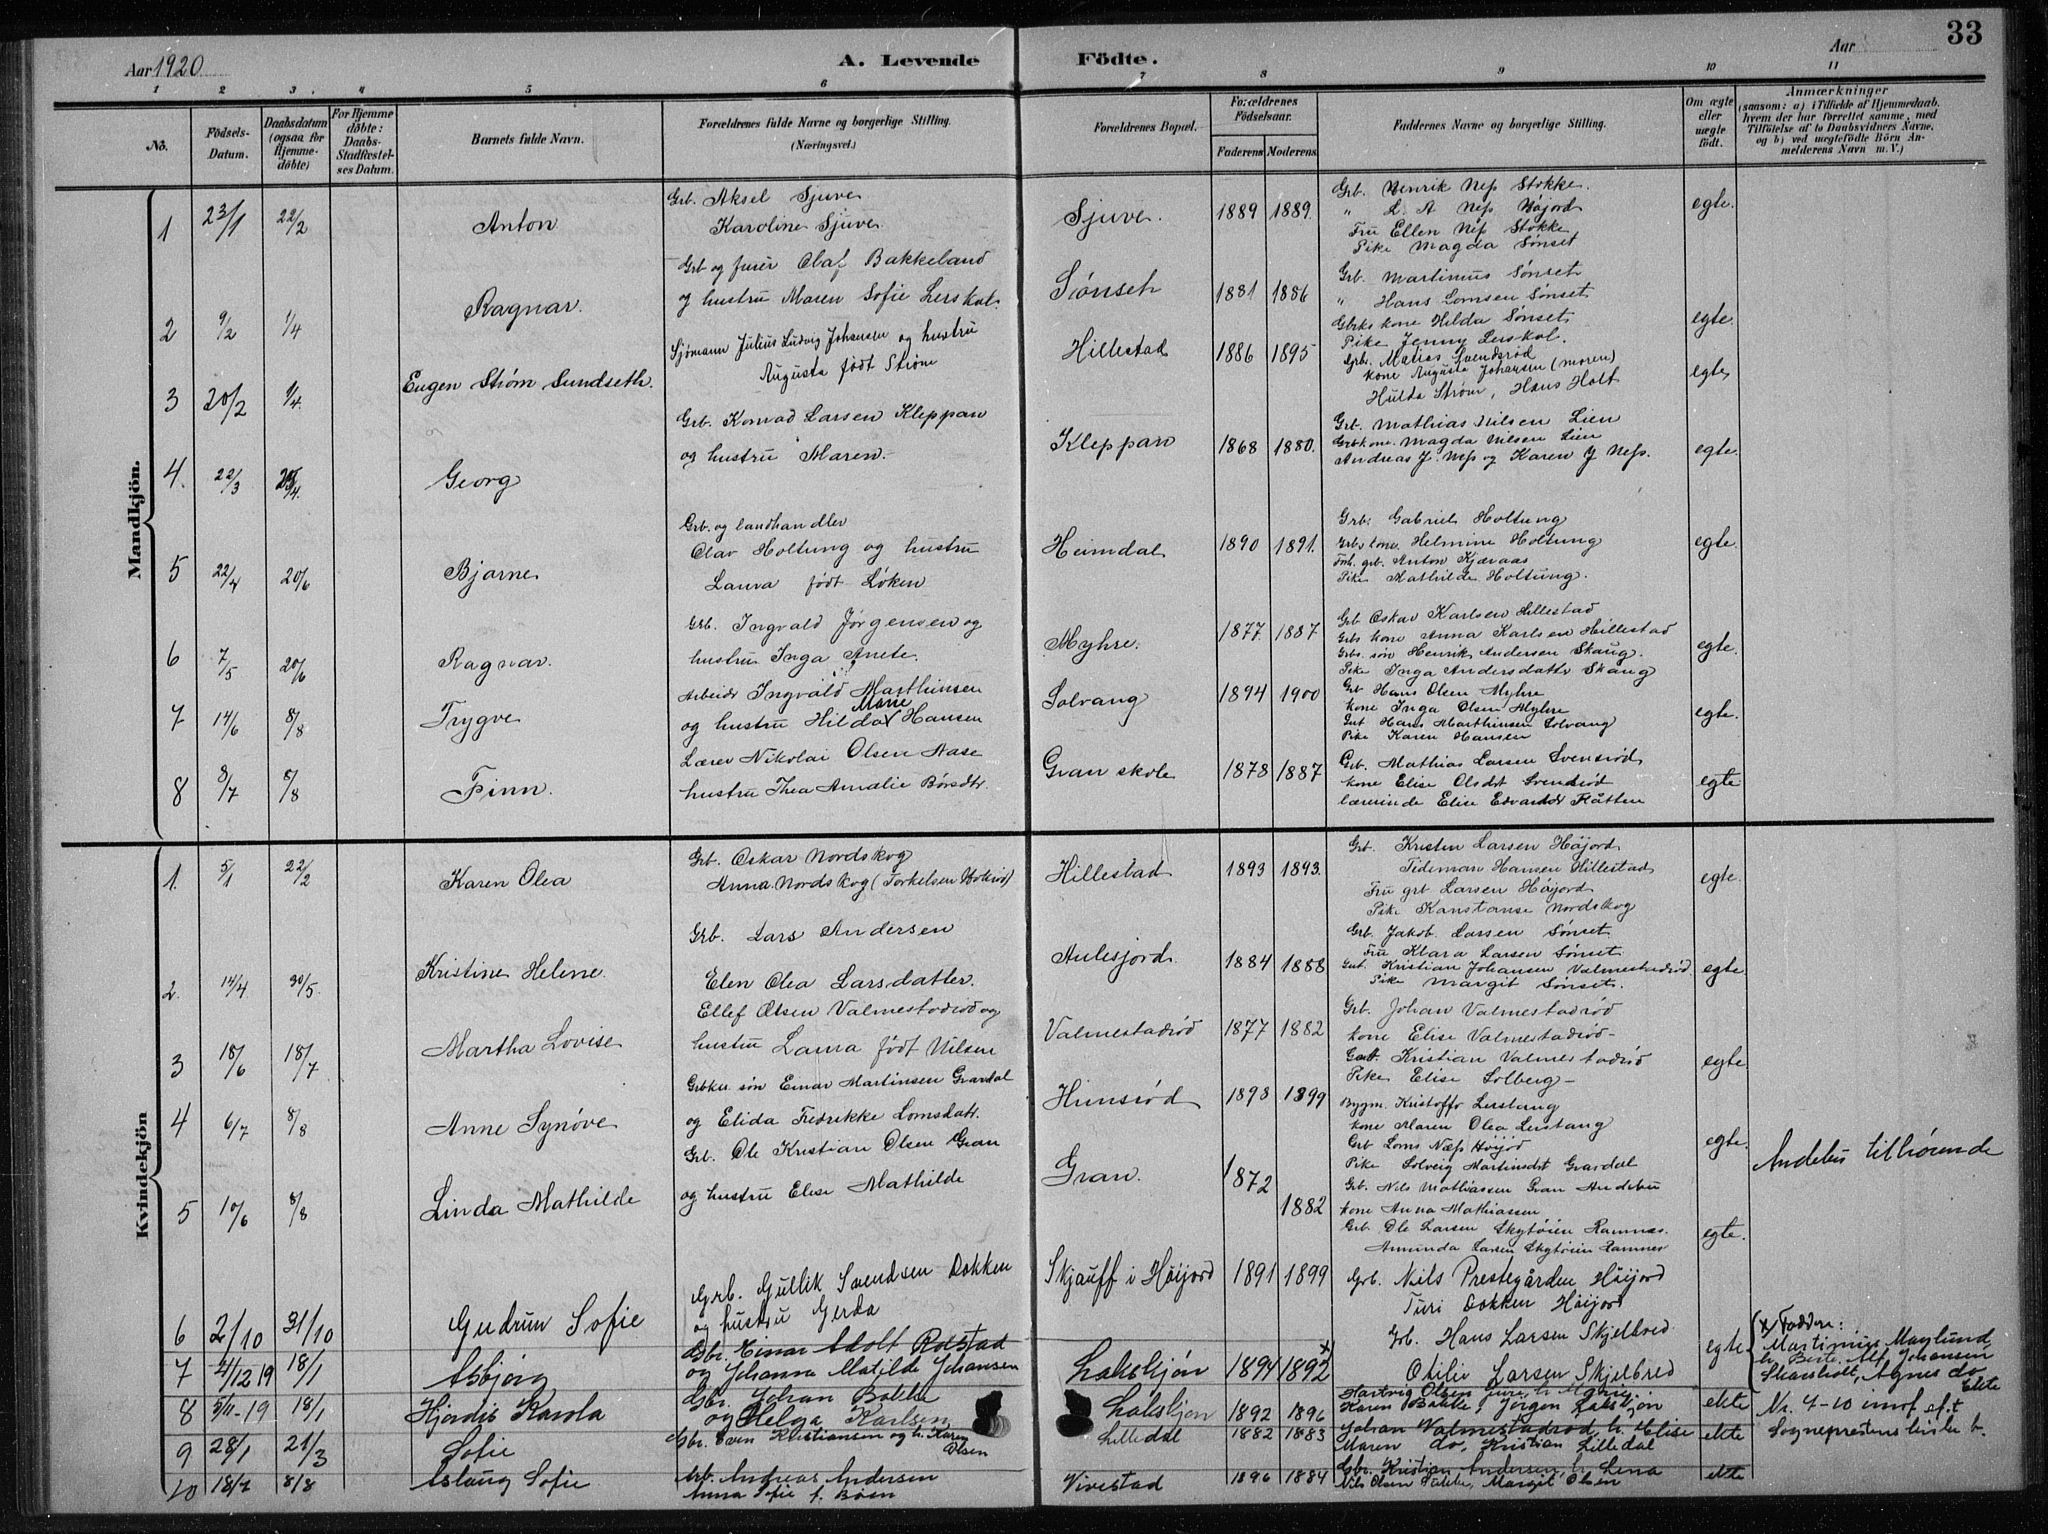 Aar 1920
A. Levende Födte.
Aar
33
1 2 3 4 5 6 7 8 9 10 11
No.
Födsels-Datum.
Daabsdatum (ogsaa for Hjemme-döbte)
For Hjemme döbte: Daabs-Stadfæstelses Datum.
Barnets fulde Navn.
Forældrenes fulde Navne og borgerlige Stilling. (Næringsvei.)
Forældrenes Bopæl.
Forældrenes Födselsaar.
Faderens Moderens
Faddernes Navne og borgerlige Stilling.
Om ægte eller uægte födt.
Anmærkninger
(saasom: a) i Tilfælde af Hjemmedaab, hvem der har forrettet samme, med Tilföielse af to Daabsvidners Navne, og b) ved uægtefödte Börn Anmelderens Navn m. V.)
Mandkjön.
1 23/1 22/2 Anton
Grb. Aksel Sjuve
Karoline Sjuve
Sjuve. 1889 1889.
Grb. Henrik Nes Stokke.
" L. A Nes Højord
Fru Ellen Nes Stokke
Pike Magda Sønset
egte.
2 9/2 1/4 Ragnar.
Grb og furer Olaf Bakkeland
og hustru Maren Sofie Lerskal.
Sønset 1881 1886
Grb. Martinius Sønset
" Hans Lomsen Sønset
Gbrks kone Hilda Sønset
Pike Jenny Lerskal.
egte.
3 20/2 1/4 Eugen Strøm Sundseth.
Sjømann Julius Ludvig Johansen og hustru
Augusta født Strøm
Hillestad 1886 1895
Grb. Matias Svendsrød
kone Augusta Johansen (moren)
Hulda Strøm, Hans Holt
egte
4. 22/3 25/4 Georg
Grb. Konrad Larsen Kleppan
og hustru Maren.
Kleppan 1868 1880.
Grb. Mathias Nilsen Lien
Grbkone. Magda Nilsen Lien
Andreas J. Nes og Karen J Nes.
egte.
5 22/4 20/6 Bjarne
Grb. og landhandler
Olav Holtung og hustru
Laura født Løken
Heimdal 1890 1891.
Grb. Gabriel Holtung
Grbs kone Helmine Holtung
Fhv. grb. Anton Kjæraas
Pike Mathilde Holtung.
egte.
6 7/5 20/6 Ragnar.
Grb. Ingvald Jørgensen og
hustru Inga Anete.
Myhre. 1877. 1887
Grb Oskar Karlsen Hillestad
Grbs kone Anna Karlsen Hillestad
Grbs. søn Henrik Andersen Skaug.
Pike Inga Andersdatter Skaug
egte.
7 14/6 8/8 Trygve
Arbeider Ingvald Marthinsen
og hustru Hilda Marie Hansen
Solvang 1894 1900
Grb Hans Olsen Myhre
kone Inga Olsen Myhre
Gut Hans Marthinsen Solvang
Pike Karen Hansen
egte.
8 8/7 8/8 Finn.
Lærer Nikolai Olsen Aase
hustru Thea Amalie Børsdtr.
Gran skole 1878 1887
Grb. Mathias Larsen Svensrød
kone Elise Olsdt Svendsrød
lærerinde Elise Edvardsdr Flåtten
egte
Kvindekjön
1. 5/1 22/2 Karen Olea
Grb. Oskar Nordskog
Anna Nordskog (Torkelsen Hotvedt)
Hillestad 1893 1893.
Grb. Kristen Larsen Høijord
Tideman Hansen Hillestad
Fru grb Larsen Høijord
Pike Konstanse Nordskog
egte.
2. 14/4 30/5. Kristine Helene.
Grb. Lars Andersen
Elen Olea Larsdatter.
Aulesjord. 1884 1888
Grb. Jakob Larsen Sønset
Fru Klara Larsen Sønset
Gut. Kristian Johansen Valmestadrød
Pike Margit Sønset.
egte
3 18/6 18/7 Martha Lovise
Ellef Olsen Valmestadrød og
hustru Laura født Nilsen
Valmestadrød 1877 1882
Grb. Johan Valmestadrød
kone Elise Valmestadrød
Gut. Kristian Valmestadrød
Pike Elise Solberg
egte
4 6/7 8/8 Anne Synøve
Grbkr. søn Einar Martinsen Gravdal
og Elida Fredrikke Lomsdatr.
Hunsrød 1898 1899
Bygm. Kristoffer Lerstang
kone Maren Olea Lerstang
Grb Loms Næs Høijord
Pike Solveig Martinsdt Gravdal
egte.
5 10/6 8/8 Linda Mathilde
Grb. Ole Kristian Olsen Gran
og hustru Elise Mathilde
Gran. 1872 1882
Grb. Nils Mathiassen Gran Andebu
kone Anna Mathiassen
Grb Ole Larsen Skytøien Ramnes.
Amunda Larsen Skytøien Ramnes
egte.
Andebu tilhørende
6 2/10 31/10 Gudrun Sofie
Grb. Gullik Svendsen Dokken
og hustru Gerda
Skjauff i Høijord 1891 1899
Grb. Nils Prestegården Høijord
Turi Dokken Høijord
Grb. Hans Larsen Skjelbred
Otilie Larsen Skjelbred
egte
7 4/12 19 18/1 Asbjørg
Gbr. Einar Adolf Rolstad
og Johanna Matilde Johansen
Lakskjøn 1894 1892 x
x/ Faddere:
Martinius Maylund,
h. Berte. Alf Johansen
Skarsholt, Agnes do
8 5/11-19 18/1 Hjørdis Karola
Gbr. Johan Bakke
og Helga Karlsen
Lakskjøn 1892 1896
Hartvig Olsen
Karen Bakke, Jørgen Lakskjøn
ekte
Nr. 7-10 indf. eft
9 28/1 21/3 Sofie
Gbr. Even Kristiansen og h. Karen Olsen
Lilledal 1882 1883
Johan Valmestadrød, h. Elise
Maren do, Kristian Lilledal
ekte
Sogneprestens liste
10 18/7 8/8 Aslaug Sofie
Arb. Andreas Andersen
Anna Sofie f. Bøen
Vivestad 1896 1884
Gbr. Kristian Andersen, h. Lena
Nils Olsen, Margit Olsen
ekte